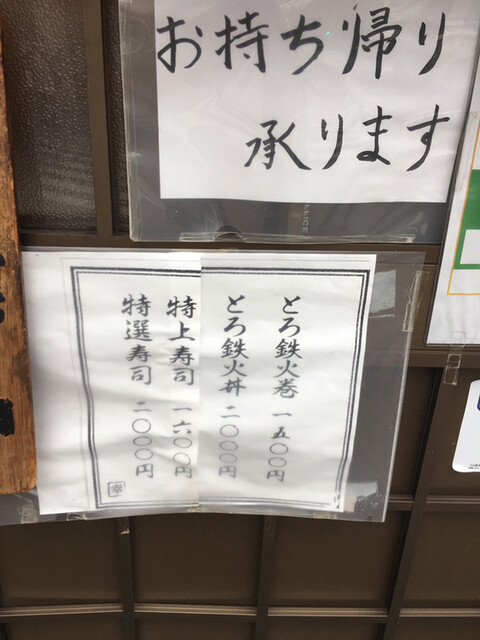 お持ち帰り
承ります
とろ鉄火巻 一五〇〇円
とろ鉄火丼 二〇〇〇円
特上寿司 一六〇〇円
特選寿司 二〇〇〇円
幸